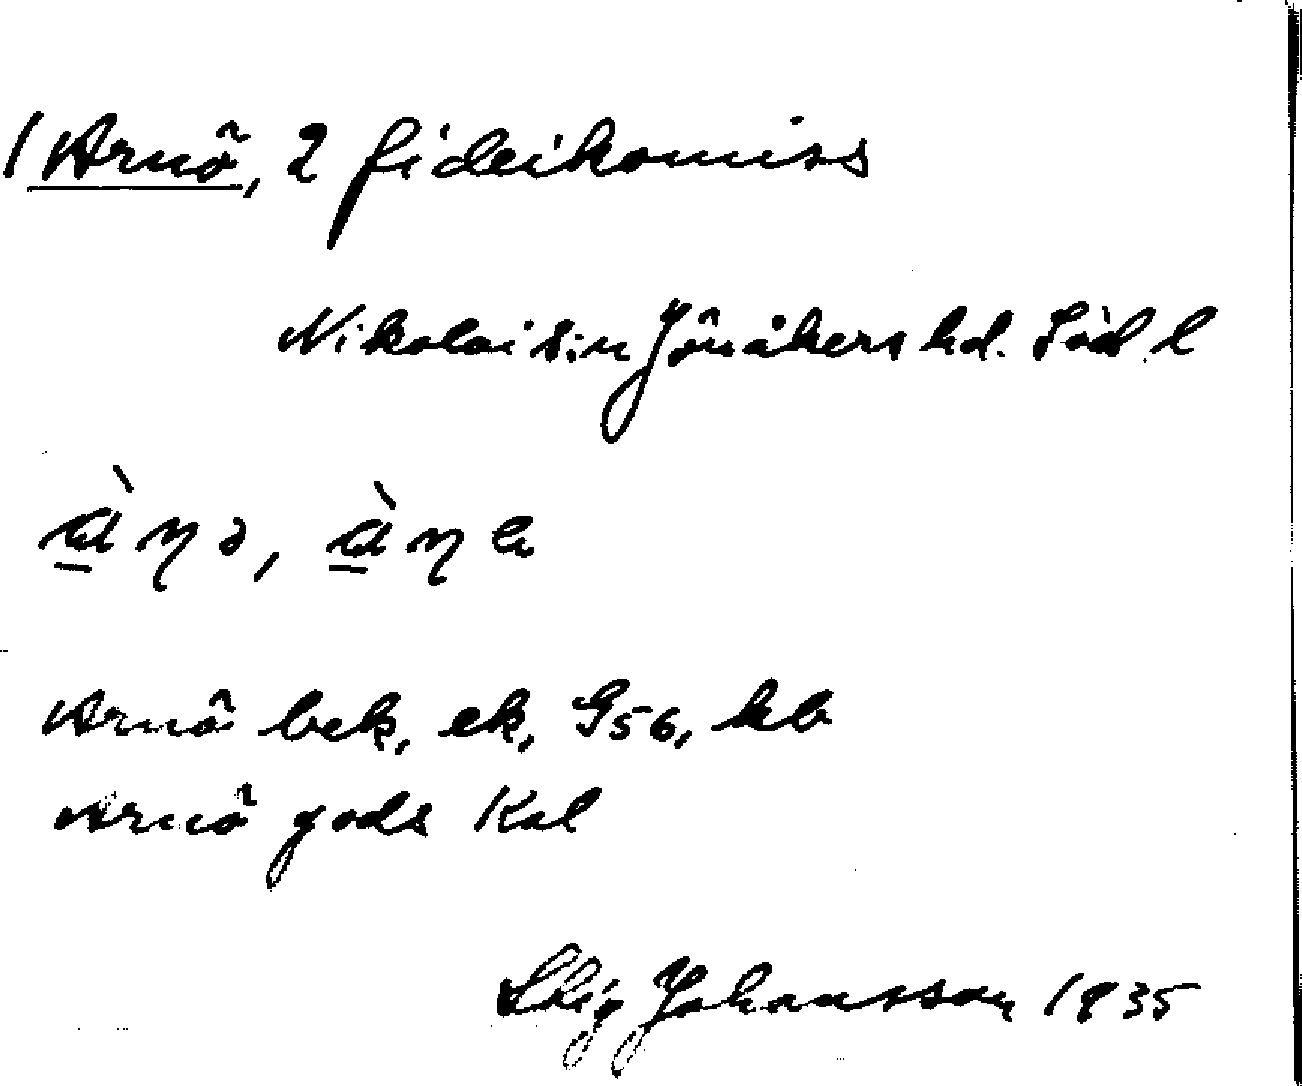 1 Arnö, 2 fideikomiss
Nikolai s:n Jönåkers hd. Södl
Arnö bek, ek, G56, kb
Arnö gods Kal
Stig Johansson 1935